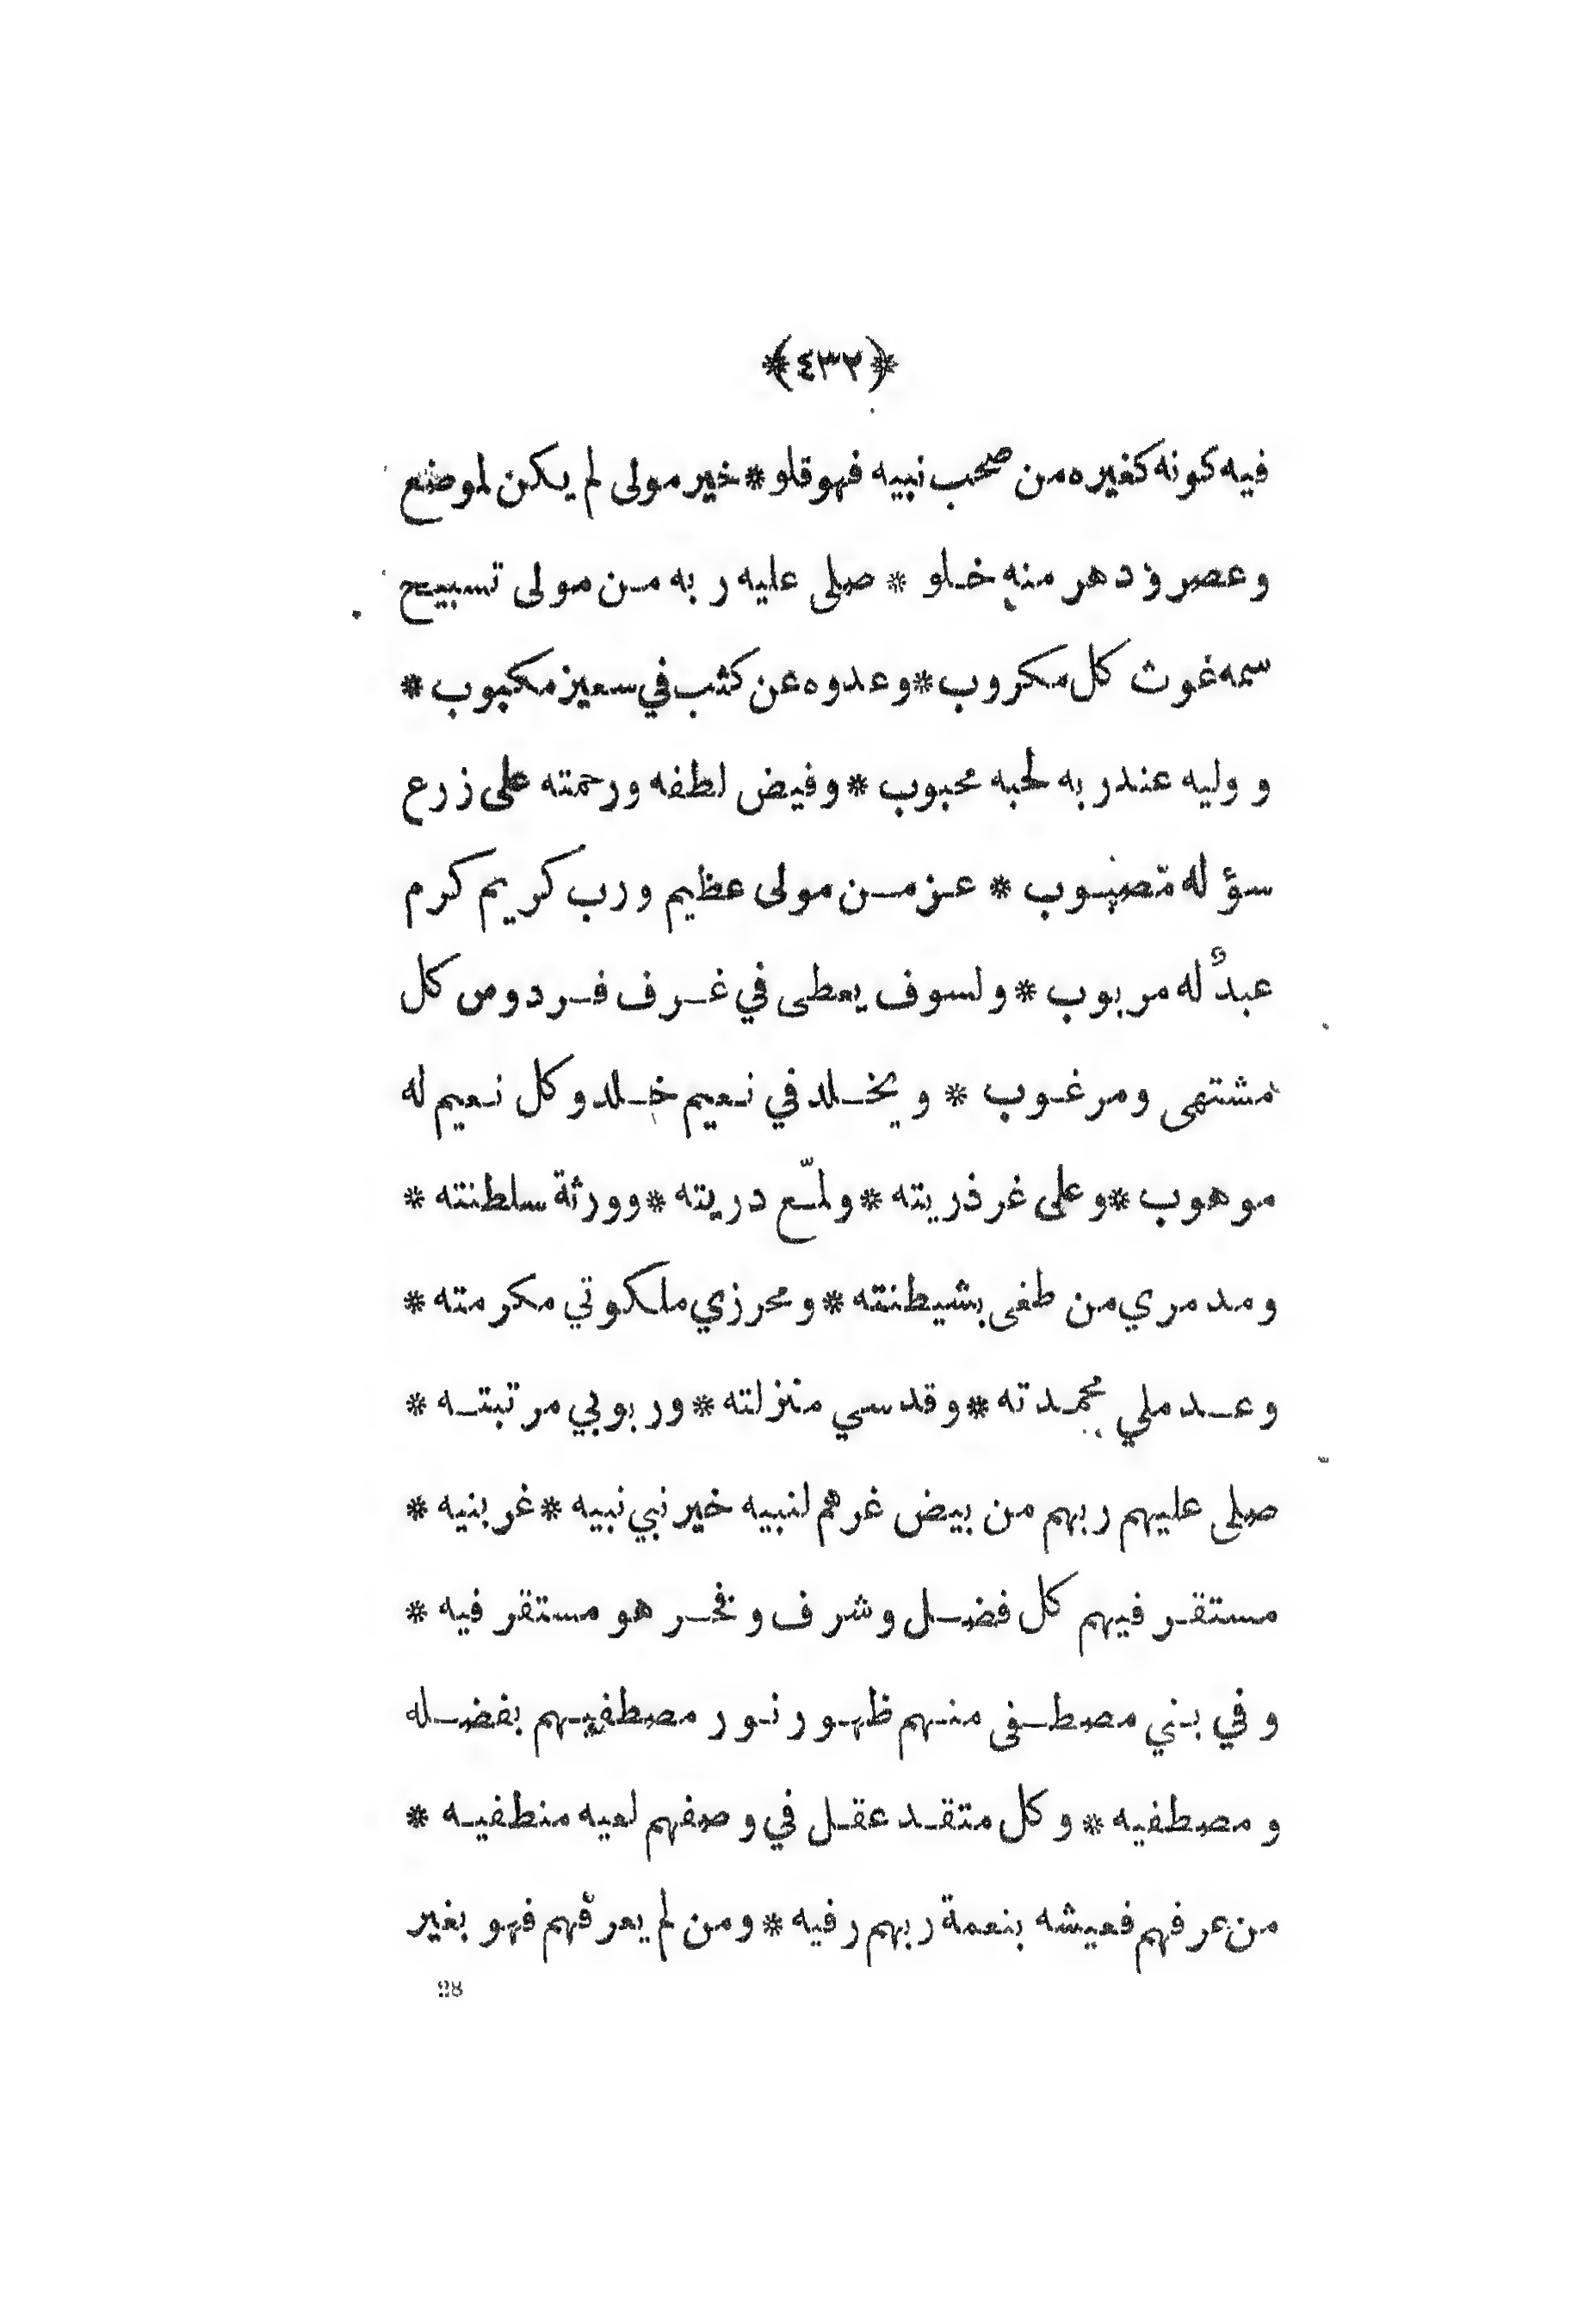 ﴿٤٣٢﴾
فيه كونه كغيره من صحب نبيه فهو قلو * خير مولى لم يكن لموضع
وعصر ودهر منه خلو * صلى عليه ربه من مولى تسبيح
سمه غوث كل مكروب * وعدوه عن كثب في سعير مكبوب *
ووليه عند ربه لحبه محبوب * وفيض لطفه ورحمته على زرع
سؤله مصبوب * عز من مولى عظيم ورب كريم كرم
عبدٌ له مربوب * ولسوف يعطى في غرف فردوس كل
مشتهى ومرغوب * ويخلد في نعيم خلد وكل نعيم له
موهوب * وعلى غر ذريته * ولمّع دريته * وورثة سلطنته *
ومدمري من طغى بشيطنته * ومحرزي ملكوتي مكرمته *
وعدملي محمدته * وقدسي منزلته * وربوبي مرتبته *
صلى عليهم ربهم من بيض غرهم لنبيه خير نبي نبيه * غر بنيه *
مستقر فيهم كل فضل وشرف وفخر هو مستقر فيه *
وفي بني مصطفى منهم ظهور نور مصطفيهم بفضله
ومصطفيه * وكل متقد عقل في وصفهم لعيه منطفيه *
من عرفهم فعيشه بنعمة ربهم رفيه * ومن لم يعرفهم فهو بغير
28